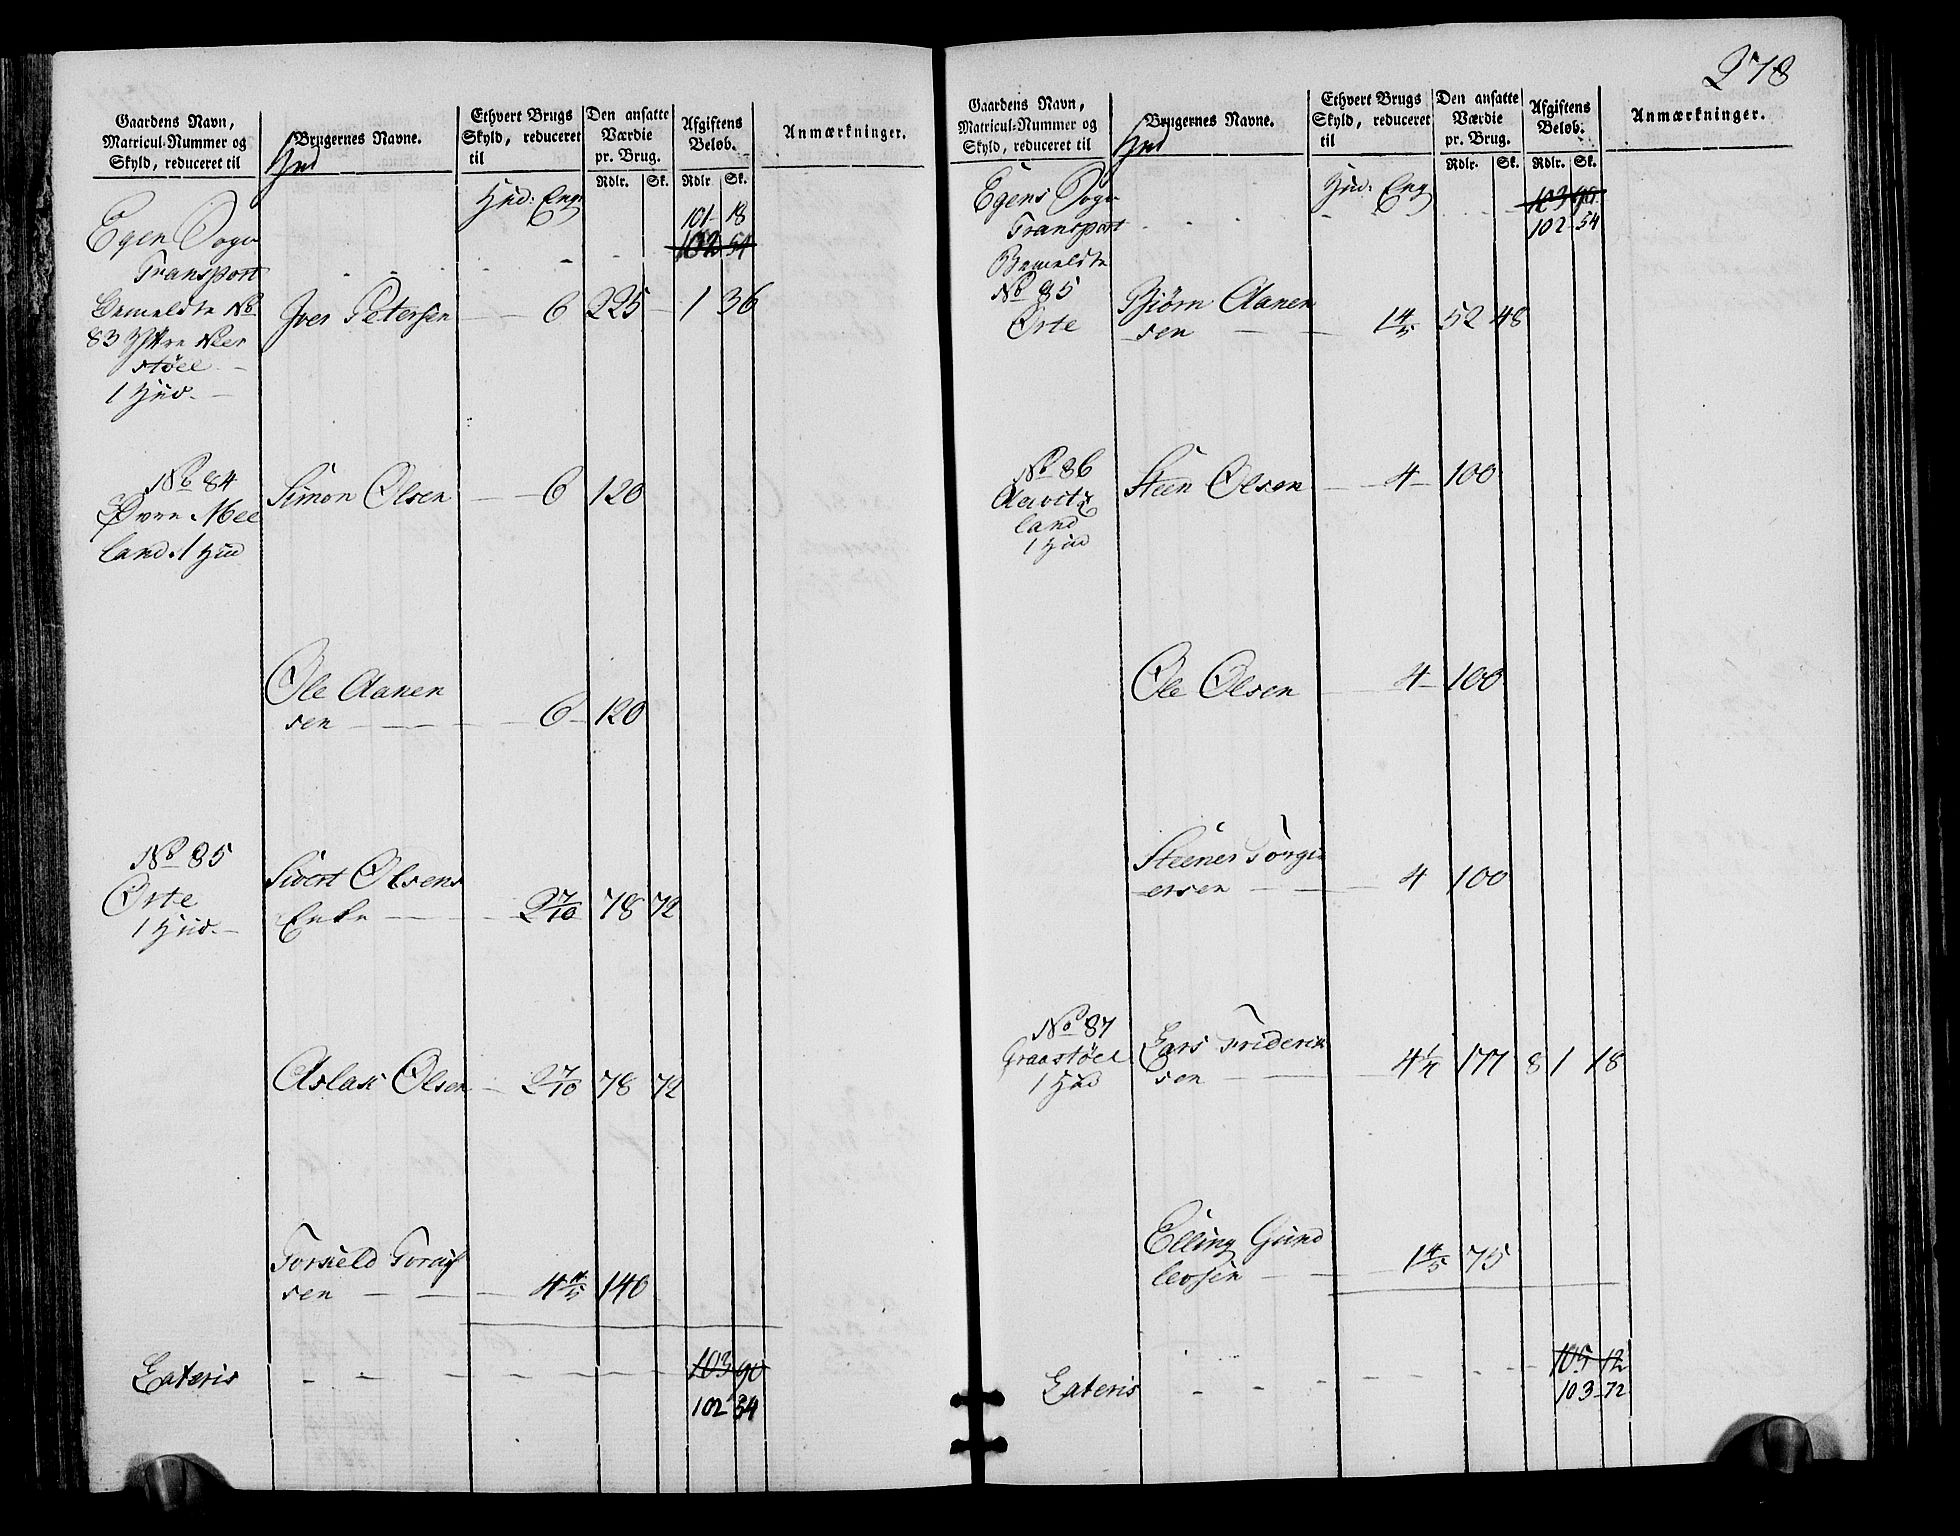 Gaardens Navn,
Matricul-Nummer og
Skyld, reduceret til
Hud
Brugernes Navne.
Ethvert Brugs
Skyld, reduceret
til
Den ansatte
Værdie
pr. Brug.
Rdlr. Sk.
Afgiftens
Beløb.
Rdlr Sk.
Anmærkninger.
Hud: Eng
Egen Sogn 101 18
102 54
Transport
Bemeldte No
83 Yttre Nier
støel
1 Hud.
Iver Petersen 6 225 1 36
No 84
Øvre Mee
land. 1 Hud
Simon Olsen 6 120
Ole Aanen
sen 6 120
No 85
Ørte
1 Hud.
Sivert Olsens
Enke 2 7/10 78 72
Aslak Olsen 2 7/10 78 72
Torkield
sen 4 4/5 140
Lateris 103 90
102 54
278
Gaardens Navn,
Matricul-Nummer og
Skyld, reduceret til
Hud
Brugernes Navne.
Ethvert Brugs
Skyld, reduceret
til
Den ansatte
Værdie
pr. Brug.
Rdlr. Sk.
Afgiftens
Beløb.
Rdlr. Sk.
Anmærkninger.
Hud: Eng
Egens Sogn 103 90
Transport 102 54
Bemeldte
No 85
Ørte
Bjørn Aanen
sen 1 4/5 52 48
No 86
land
1 Hud
Steen Olsen 4 100
Ole Olsen 4 100
Steener Torgi
ersen 4 100
No 87
Graastøel
1 Hud
Lars Friderik
sen 4 1/4 177 8 1 18
Elling Gund
levsen 1 4/5 75
Lateris 105 12
103 72